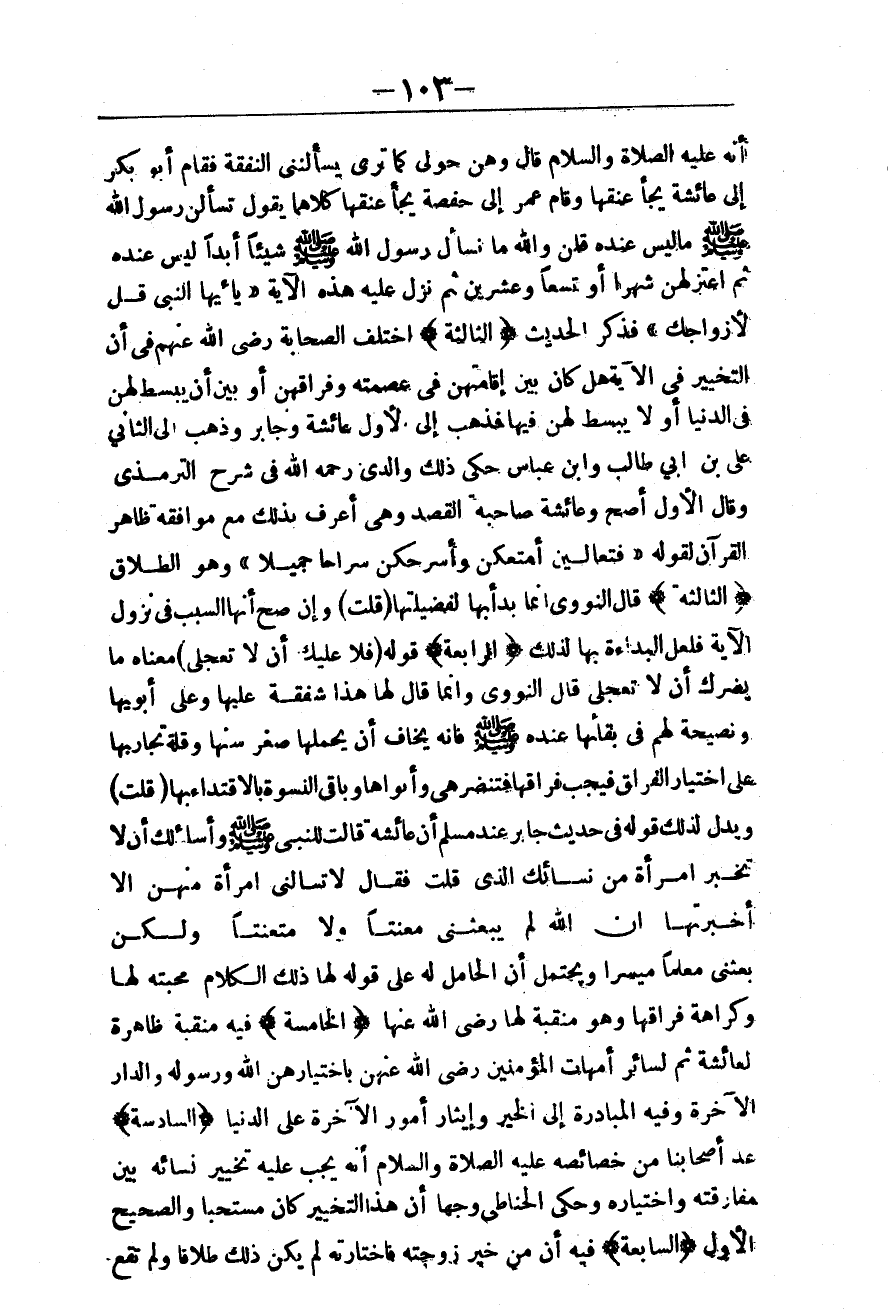 -١٠٣-
أنه عليه الصلاة والسلام قال وهن حولى كما ترى يسألننى النفقة فقام أبو بكر
إلى عائشة يجأ عنقها وقام عمر إلى حفصة يجأ عنقها كلاهما يقول تسألن رسول الله
ﷺ ماليس عنده قلن والله ما نسأل رسول الله ﷺ شيئاً أبداً ليس عنده
ثم اعتزلهن شهرا أو تسعاً وعشرين ثم نزل عليه هذه الآية « يا أيها النبى قل
لأزواجك » فذكر الحديث ﴿ الثالثة ﴾ اختلف الصحابة رضى الله عنهم فى أن
التخيير فى الآية هل كان بين إقامتهن فى عصمته وفراقهن أو بين أن يبسط لهن
فى الدنيا أو لا يبسط لهن فيها فذهب إلى الأول عائشة وجابر وذهب الى الثاني
على بن ابي طالب وابن عباس حكى ذلك والدى رحمه الله فى شرح الترمذى
وقال الأول أصح وعائشة صاحبة القصد وهى أعرف بذلك مع موافقة ظاهر
القرآن لقوله « فتعالين أمتعكن وأسرحكن سراحا جميلا » وهو الطلاق
﴿ الثالثة ﴾ قال النووى انما بدأبها لفضيلتها (قلت) وإن صح أنها السبب فى نزول
الآية فلعل البداءة بها لذلك ﴿ الرابعة ﴾ قوله (فلا عليك أن لا تعجلى) معناه ما
يضرك أن لا تعجلى قال النووى وانما قال لها هذا شفقة عليها وعلى أبويها
ونصيحة لهم فى بقائها عنده ﷺ فانه يخاف أن يحملها صغر سنها وقلة تجاربها
على اختيار الفراق فيجب فراقها فتنضر هى وأبواها وباقى النسوة بالاقتداء بها (قلت)
ويدل لذلك قوله فى حديث جابر عند مسلم أن عائشة قالت للنبى ﷺ وأسائلك أن لا
تخبر امرأة من نسائك الذى قلت فقال لا تسالنى امرأة منهن الا
أخبرتها ان الله لم يبعثنى معنتاً ولا متعنتاً ولكن
بعثنى معلماً ميسرا ويحتمل أن الحامل له على قوله لها ذلك الكلام محبته لها
وكراهة فراقها وهو منقبة لها رضى الله عنها ﴿ الخامسة ﴾ فيه منقبة ظاهرة
لعائشة ثم لسائر أمهات المؤمنين رضى الله عنهن باختيارهن الله ورسوله والدار
الآخرة وفيه المبادرة إلى الخير وإيثار أمور الآخرة على الدنيا ﴿السادسة﴾
عد أصحابنا من خصائصه عليه الصلاة والسلام أنه يجب عليه تخيير نسائه بين
مفارقته واختياره وحكى الحناطى وجها أن هذا التخيير كان مستحبا والصحيح
الأول ﴿السابعة﴾ فيه أن من خير زوجته فاختارته لم يكن ذلك طلاقا ولم تقع